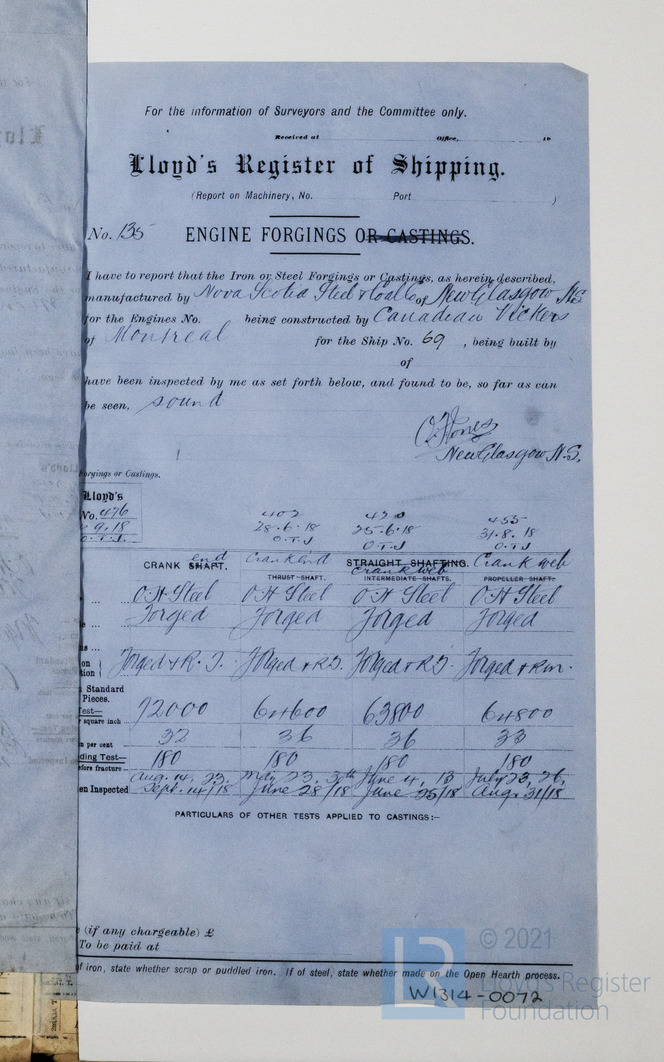 For the information of Surveyors and the Committee only.
Received at Office, 19
Lloyd's Register of Shipping.
(Report on Machinery, No. Port )
No. 135 ENGINE FORGINGS OR CASTINGS.
I have to report that the Iron or Steel Forgings or Castings, as herein described,
manufactured by Nova Scotia Steel & Coal Co of New Glasgow N.S.
for the Engines No. being constructed by Canadian Vickers
of Montreal for the Ship No. 69 , being built by
of
have been inspected by me as set forth below, and found to be, so far as can
be seen, sound
Jones
New Glasgow N.S.
Forgings or Castings.
Lloyd's
No. 476 402 420 455
9.18 28.6.18 25.6.18 31.8.18
O.T.J. O.T.J O.T.J O.T.J
CRANK SHAFT. end Crank End STRAIGHT SHAFTING. Crank web
THRUST-SHAFT. Crank web INTERMEDIATE SHAFTS. PROPELLER SHAFT.
O.H Steel O.H Steel O.H Steel O.H Steel
Forged Forged Forged Forged
Forged & R. T. Forged & R.T. Forged & R.T. Forged & R.M.
Standard
Pieces.
Test—
square inch 72000 64600 63800 64800
per cent 32 36 36 33
ding Test— 180 180 180 180
fore fracture
Aug. 14, 23, May 23, June 4, 13 July 23, 26,
en Inspected Sept. 14/18 June 28/18 June 25/18 Aug. 31/18
PARTICULARS OF OTHER TESTS APPLIED TO CASTINGS:—
(if any chargeable) £
To be paid at
of iron, state whether scrap or puddled iron. If of steel, state whether made on the Open Hearth process.
LR © 2021
Lloyd's Register
Foundation
W1314-0072